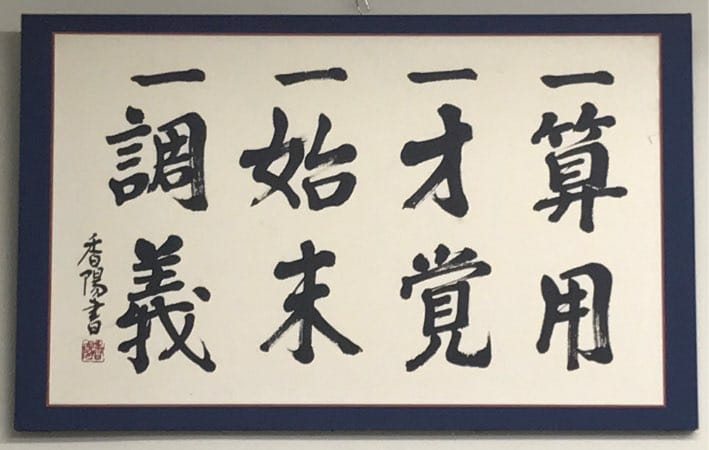 一算用
一才覚
一始末
一調義
香陽書